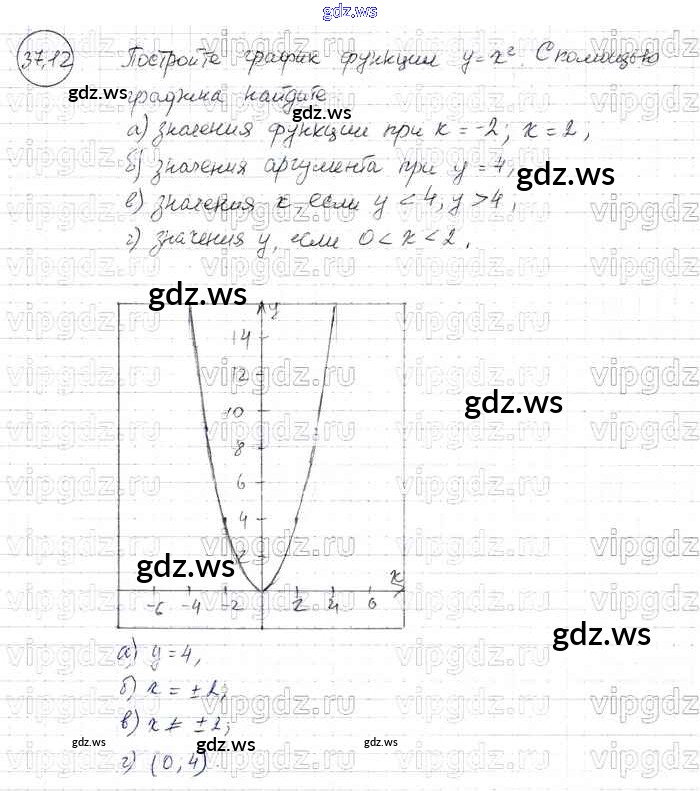 gdz.ws
37.12 Постройте график функции y = x². С помощью
gdz.ws
графика найдите
а) значения функции при x = -2; x = 2,
б) значения аргумента при y = 4,
gdz.ws
в) значения x, если y < 4, y > 4,
г) значения y, если 0 < x < 2.
gdz.ws
vipgdz.ru vipgdz.ru vipgdz.ru vipgdz.ru
y
14
12
10
gdz.ws
8
6
4
2
gdz.ws
x
-6 -4 -2 2 4 6
gdz.ws
а) y = 4,
б) x = ±2;
в) x ≠ ±2;
gdz.ws gdz.ws gdz.ws
г) (0,4)